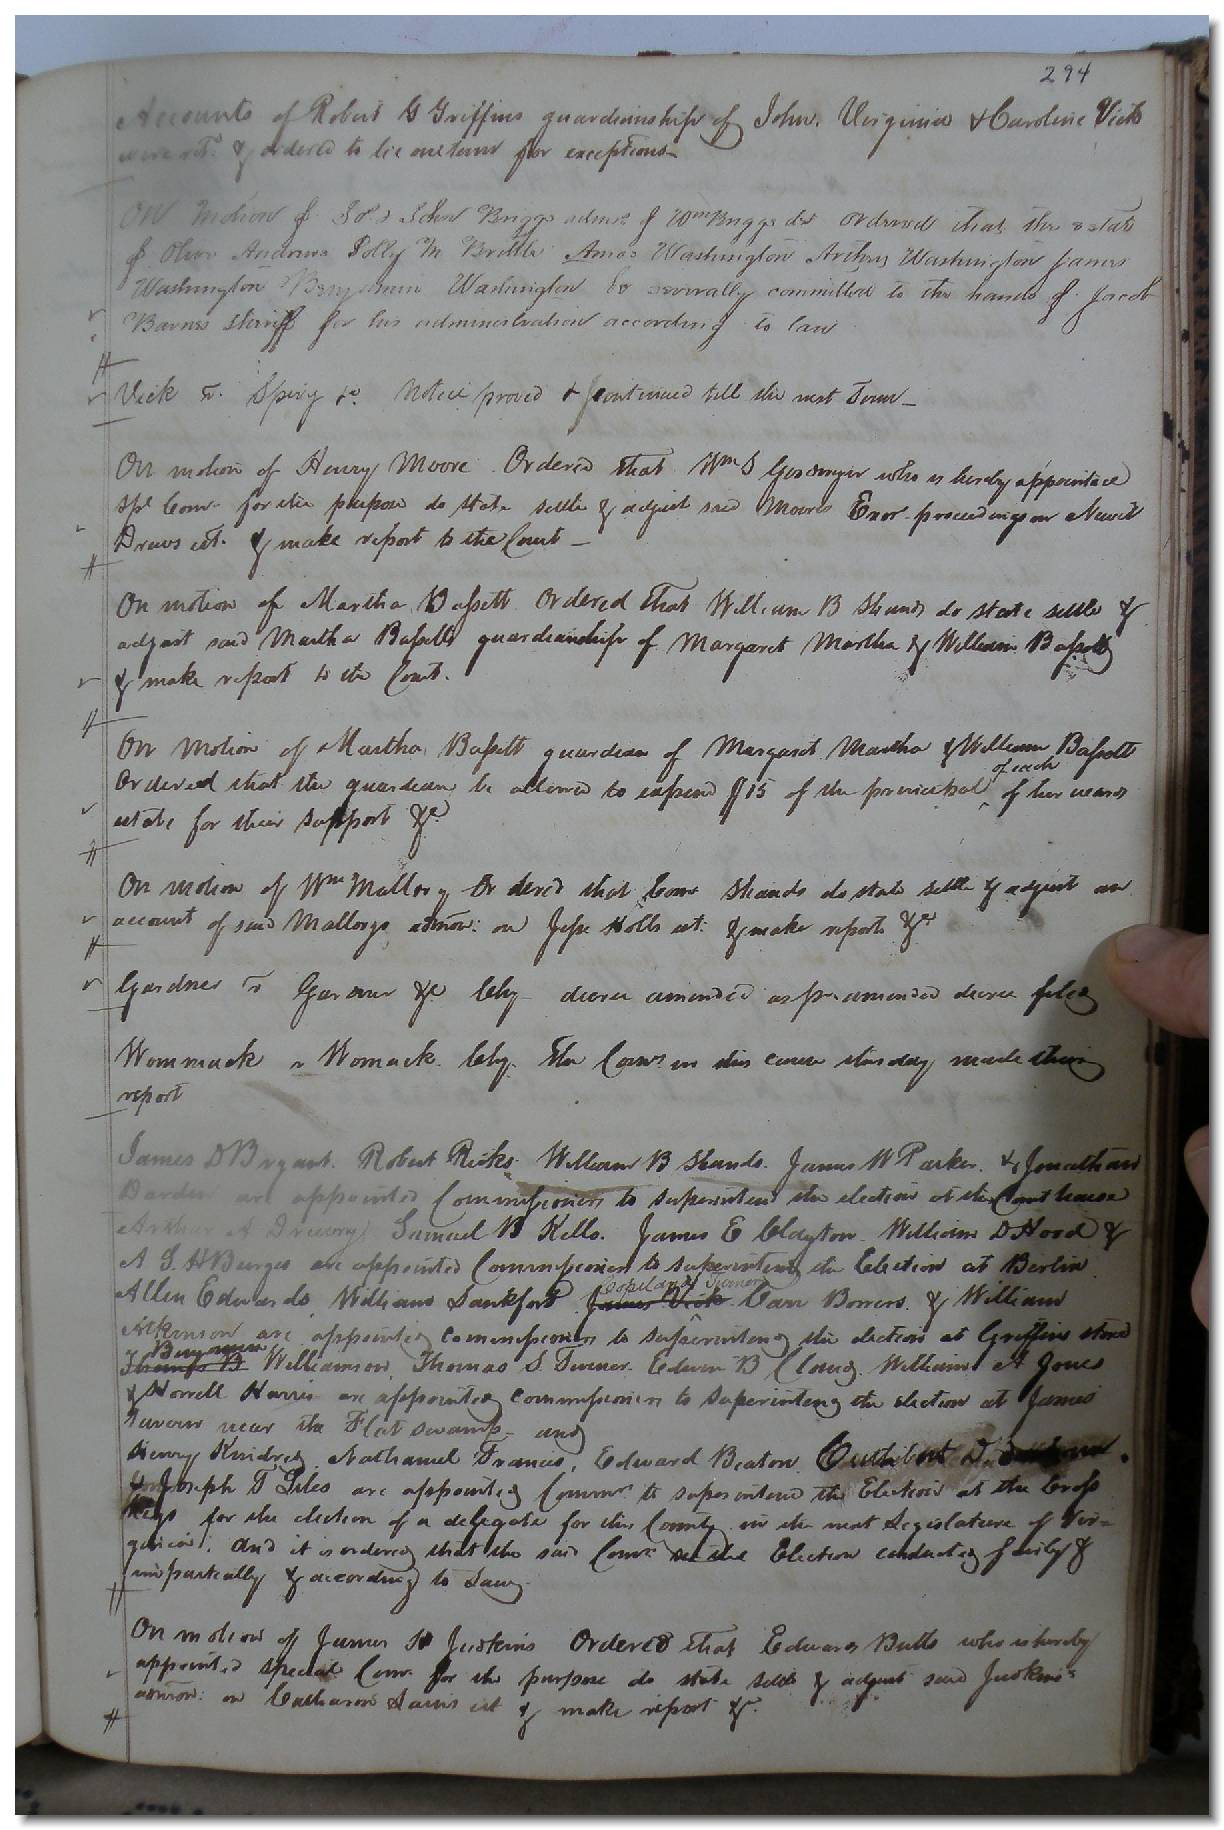 294
Accounts of Robert G Griffins guardianship of John, Virginia & Caroline Vick
were ret. & ordered to lie one term for exceptions
On Motion of John Briggs admr. of Wm Briggs dec ordered that the estate
of Olive Andrews Polly M Brittle Amos Washington Arthur Washington James
Washington Benjamin Washington be severally committed to the hands of Jacob
Barnes Sheriff for his administration according to law
Vick v. Spivy &c. Notice proved & continued till the next Term
On motion of Henry Moore Ordered that Wm S who is hereby appointed
Spl Comr for the purpose do state settle & adjust said Moores Exor proceedings on Newit
Drews est. & make report to the Court
On motion of Martha Bassett Ordered that William B Shands do state settle &
adjust said Martha Bassetts guardianship of Margaret Martha & William Bassett
& make report to the Court.
On Motion of Martha Bassett guardian of Margaret Martha & William Bassett
of each
Ordered that the guardian be allowed to expend $15 of the principal of her wards
estate for their support &c
On motion of Wm Mallory Ordered that Comr Shands do state settle & adjust an
account of said Mallorys admon: on Jesse Holts est: & make report &c
Gardner v Gardner &c Chy decree amended as pr amended decree filed
Wommack v Womack Chy. The Comrs in this cause this day made their
report
James D Bryant. Robert Ricks William B Shands. James W Parker. & Jonathan
Darden are appointed Commissioners to superintend the election at the Courthouse
Arthur A Drewry Samuel B Kello. James E Clayton William D Hood &
A S. H Burges are appointed Commissioners to superintend the Election at Berlin
Copeland Turner
Allen Edwards Williams Lankford James Vick Carr Bowers & William
Atkinson are appointed commissioners to superintend the election at Griffins store
Benjamin
Thomas B Williamson, Thomas S. Turner. Edwin B Claud William A Jones
& Howell Harris are appointed commissioners to superintend the election at James
near the Flat swamp and
Henry Kindred Nathaniel Francis, Edward Beaton Cuthbert D.
& Joseph T Liles are appointed Commrs to superintend the Election at the Cross
Keys for the election of a delegate for this County in the next Legislature of Vir-
ginia, and it is ordered that the said Comrs see the Election conducted fairly &
impartially & according to Law
On motion of James H Judkins Ordered that Edward Butts who is hereby
appointed special Comr for the purpose do state settle & adjust said Judkins
admon: on Catharine est & make report &c.